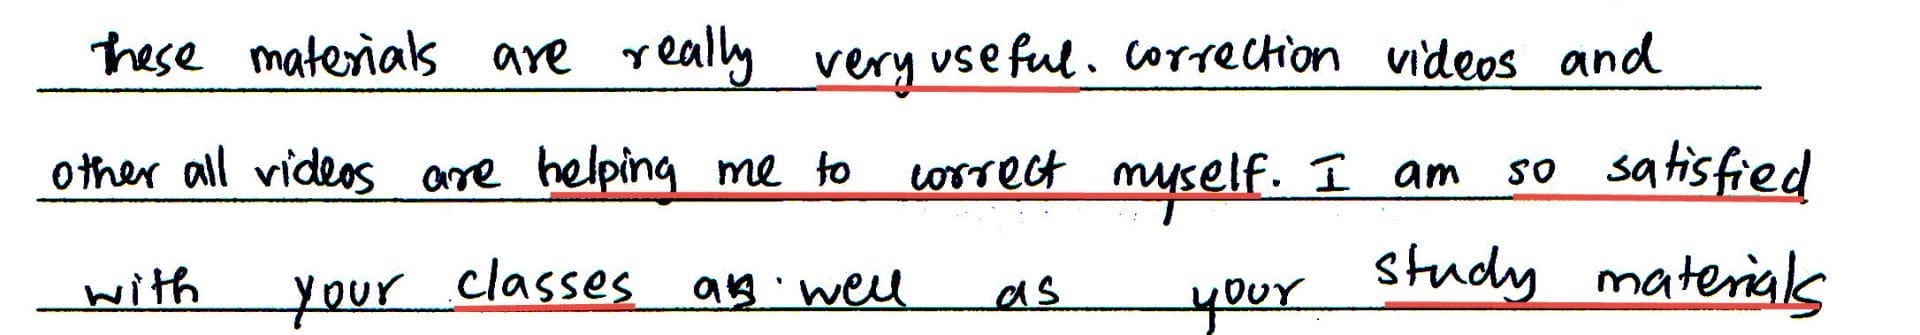 These materials are really very useful. Correction videos and
other all videos are helping me to correct myself. I am so satisfied
with your classes as well as your study materials